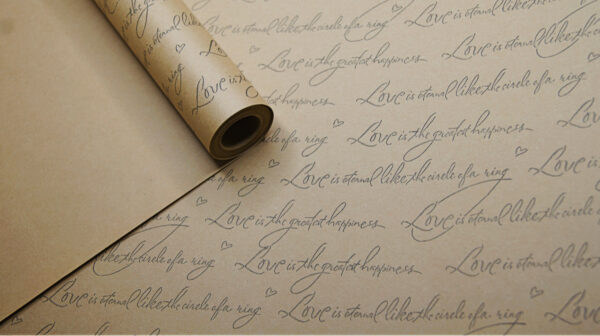 Love is eternal
like the circle of a ring
Love is eternal like the circle of a
Love is the greatest happiness
Love is the greatest happiness
ring
Love is the
Love is eternal like the circle of a ring
greatest happiness
ring Love is the greatest happiness
of a ring Love is eternal like the circle of a ring Love
ring Love is the greatest happiness Love is eternal like the circle
like the circle of a ring Love is the greatest happiness Love is eternal like the
Love is eternal like the circle of a ring Love is the greatest happiness